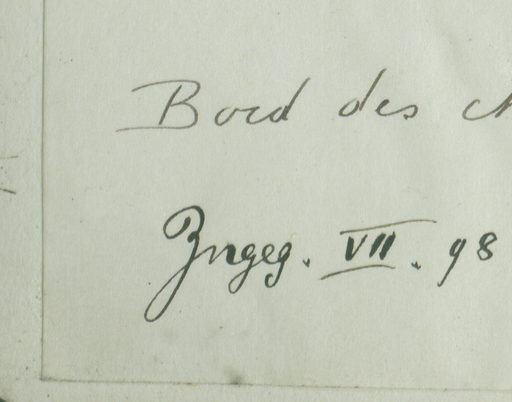 Bord des
Ingeg. VII. 98